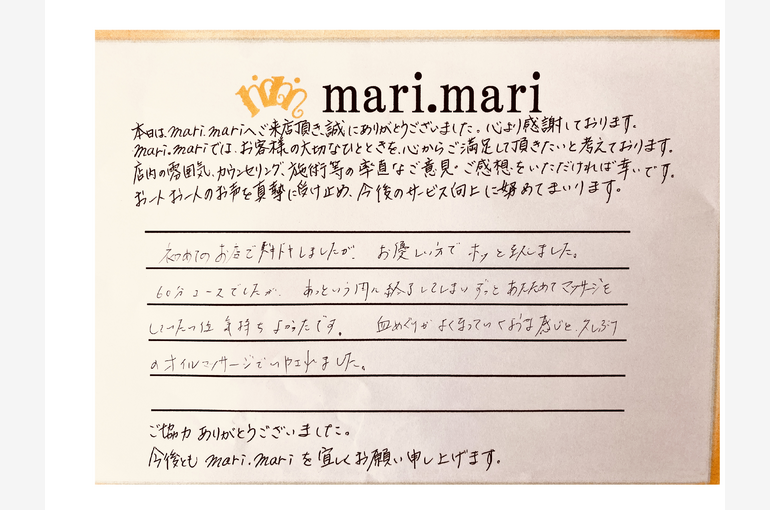 mari.mari
本日は、mari.mariへご来店頂き、誠にありがとうございました。心より感謝しております。
mari.mariでは、お客様の大切なひとときを、心からご満足して頂きたいと考えております。
店内の雰囲気、カウンセリング、施術等の率直なご意見・ご感想をいただければ幸いです。
お一人お一人のお声を真摯に受け止め、今後のサービス向上に努めてまいります。
初めてのお店で ましたが、 お優しい方で ホッと しました。
60分コースでしたが、 あっという間に終了してしまい ずっと あたためてマッサージを
していたい位 気持ち よかったです。 血めぐりが よくなっていくような感じと、久しぶり
のオイルマッサージで いやされました。
ご協力 ありがとうございました。
今後とも mari.mari を宜しくお願い申し上げます。